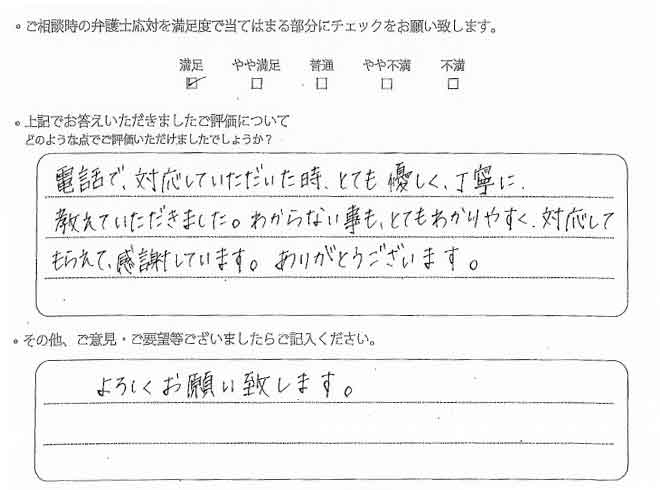 ・ご相談時の弁護士応対を満足度で当てはまる部分にチェックをお願い致します。
満足 やや満足 普通 やや不満 不満
☑ □ □ □ □
・上記でお答えいただきましたご評価について
どのような点でご評価いただけましたでしょうか？
電話で、対応していただいた時、とても優しく、丁寧に、
教えていただきました。わからない事も、とてもわかりやすく、対応して
もらえて、感謝しています。ありがとうございます。
・その他、ご意見・ご要望等ございましたらご記入ください。
よろしくお願い致します。